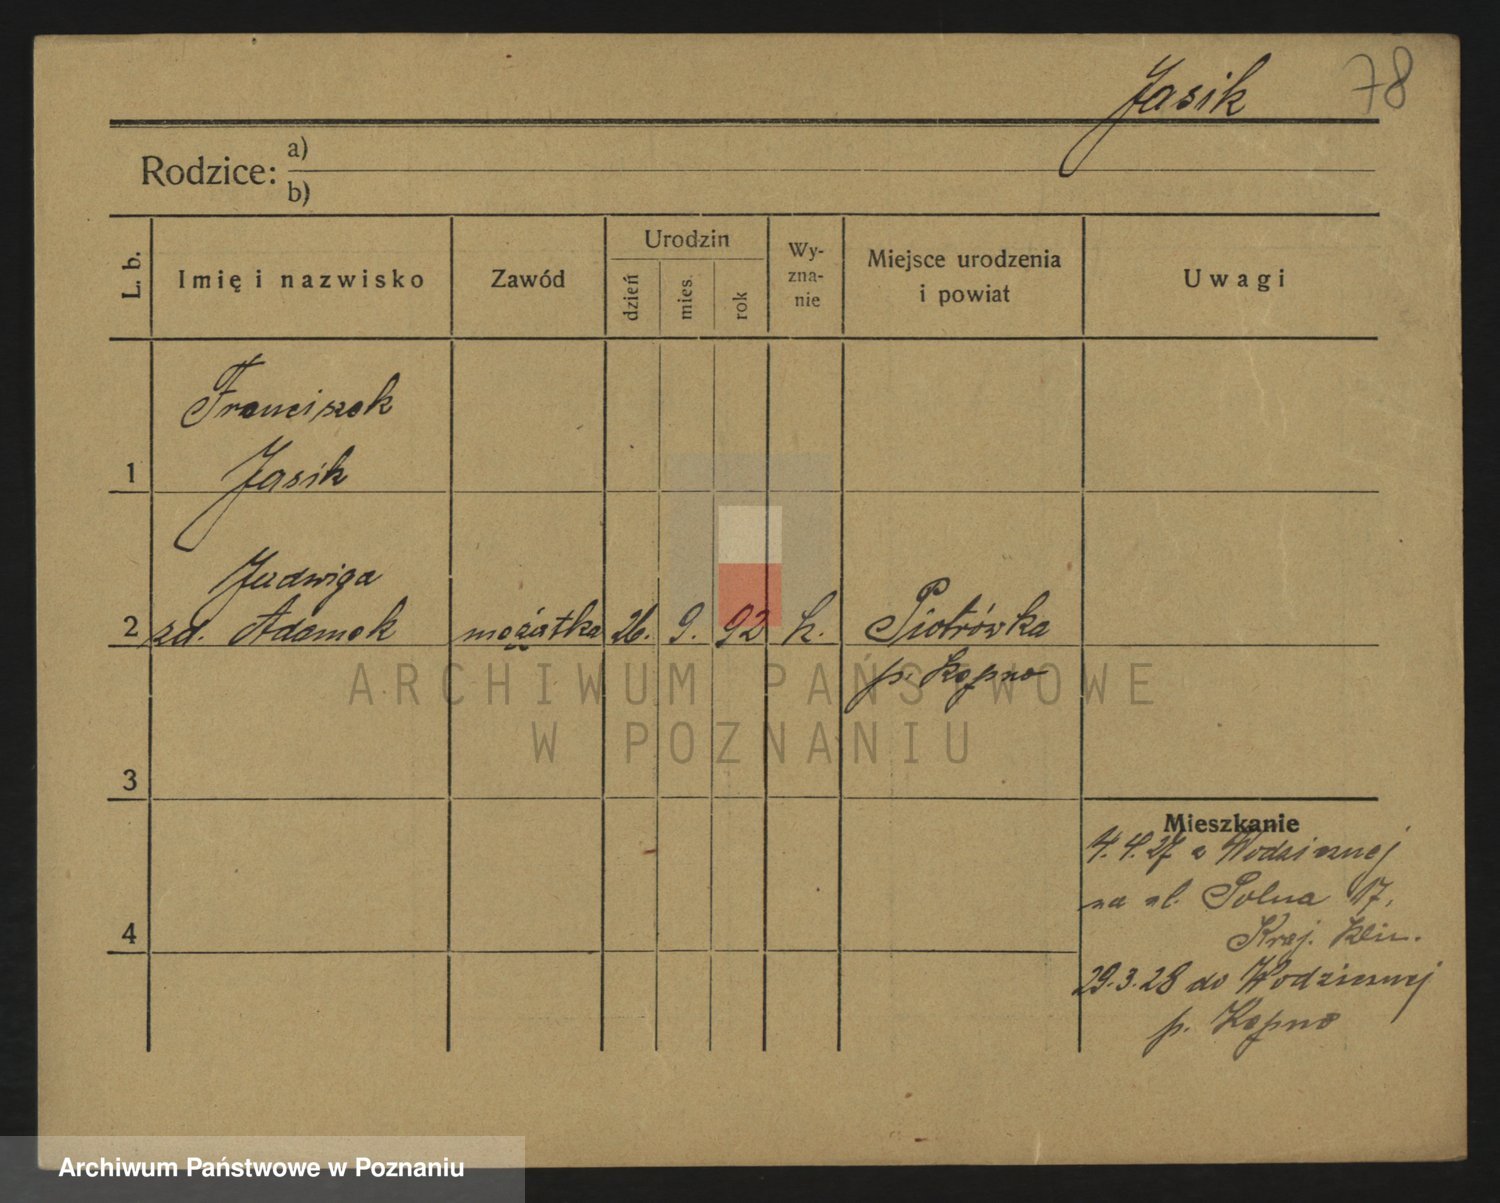 Jasik 78
Rodzice: a)
b)
L. b.
Imię i nazwisko
Zawód
Urodzin
dzień
mies.
rok
Wy-
zna-
nie
Miejsce urodzenia
i powiat
Uwagi
Franciszek
1 Jasik
Jadwiga
2 zd. Adamek mężatka 26. 9. 92 k. Piotrówka
p. Kępno
3
4
Mieszkanie
4.4.27 z Wodzicznej
na ul. Polna 17,
Kraj. Klin.
29.3.28 do Wodzicznej
p. Kępno
ARCHIWUM PAŃSTWOWE
W POZNANIU
Archiwum Państwowe w Poznaniu